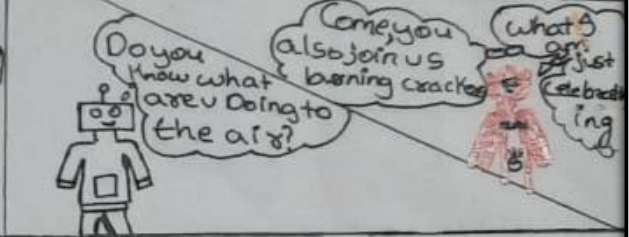 Do you
know what
are u Doing to
the air?
Come, you
also join us
burning cracker
what?
am just
celebrat
ing